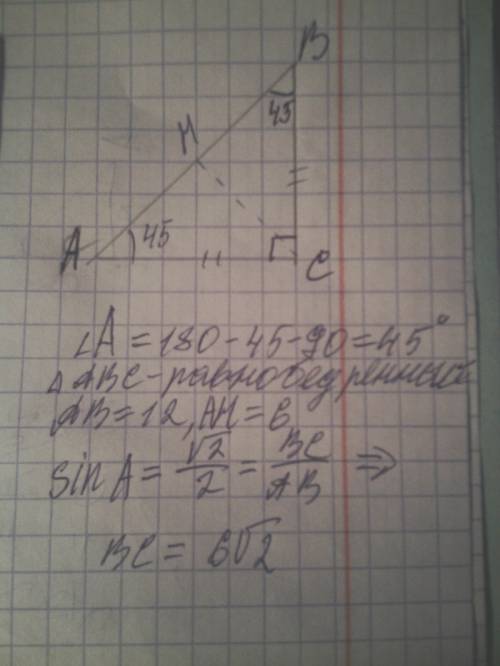 B
45
H
A 45
C
∠A = 180 - 45 - 90 = 45°
Δ ABC - равнобедренный
AB = 12, AH = 6
sin A = √2/2 = BC/AB ⇒
BC = 6√2